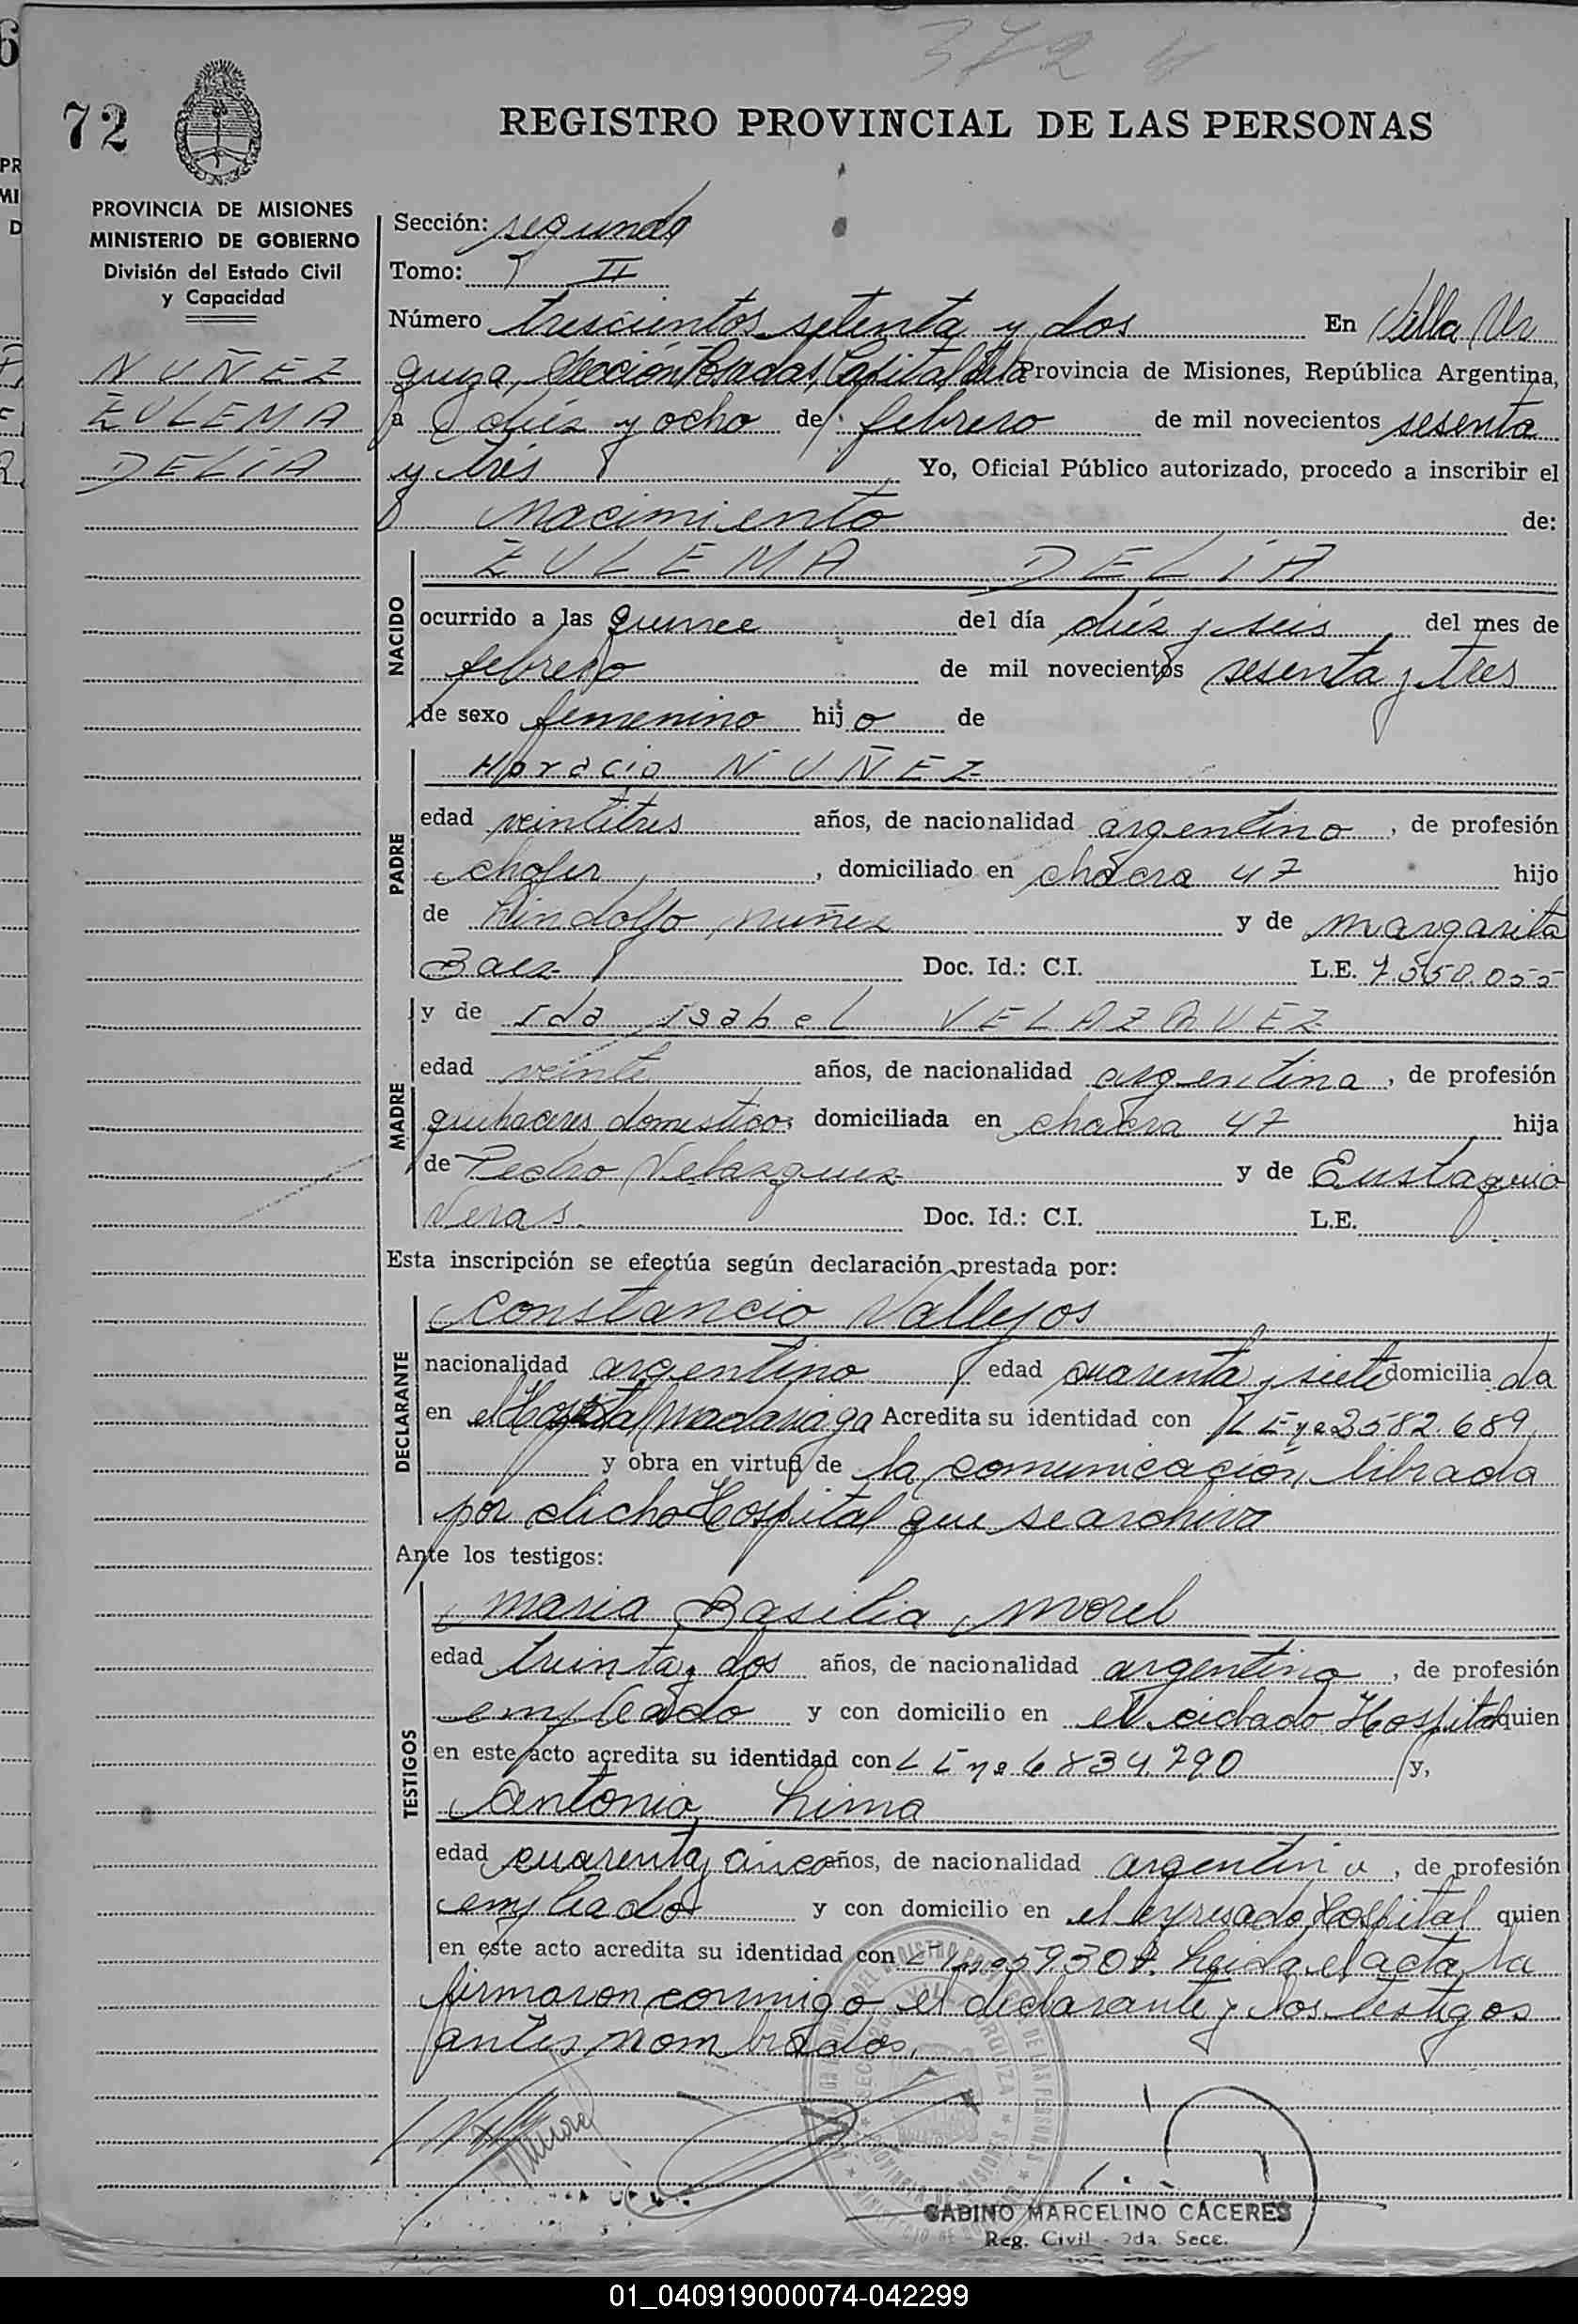 372
72
REGISTRO PROVINCIAL DE LAS PERSONAS
PROVINCIA DE MISIONES
MINISTERIO DE GOBIERNO
División del Estado Civil
y Capacidad
NUÑEZ
ZULEMA
DELIA
Sección: segunda
Tomo: II
Número trescientos setenta y dos En Villa Ur
quiza, Sección Posadas, Capital de la Provincia de Misiones, República Argentina,
a diez y ocho de febrero de mil novecientos sesenta
y tres Yo, Oficial Público autorizado, procedo a inscribir el
nacimiento de:
NACIDO
ZULEMA DELIA
ocurrido a las quince del día diez y seis del mes de
febrero de mil novecientos sesenta y tres
de sexo femenino hijo de
PADRE
Horacio NUÑEZ
edad veintitres años, de nacionalidad argentino, de profesión
chofer, domiciliado en chacra 47 hijo
de Lindolfo Nuñez y de Margarita
Baez Doc. Id.: C.I. L.E. 7.550.055
MADRE
y de Ida Isabel VELAZQUEZ
edad veinte años, de nacionalidad argentina, de profesión
quehaceres domesticos domiciliada en chacra 47 hija
de Pedro Velazquez y de Eustaquia
Veras. Doc. Id.: C.I. L.E.
Esta inscripción se efectúa según declaración prestada por:
DECLARANTE
Constancio Vallejos
nacionalidad argentino edad cuarenta y siete domicilia da
en el Hospital Madariaga Acredita su identidad con L E nº 2582.689
y obra en virtud de la comunicación librada
por dicho Hospital que se archiva
Ante los testigos:
TESTIGOS
Maria Basilia Morel
edad treinta y dos años, de nacionalidad argentina, de profesión
empleado y con domicilio en el citado Hospital quien
en este acto acredita su identidad con L E nº 6834.790 y,
Antonio Lima
edad cuarenta y cinco años, de nacionalidad argentino, de profesión
empleado y con domicilio en el expresado Hospital quien
en este acto acredita su identidad con Leida el acta la
firmaron conmigo el declarante y los testigos
antes nombrados.
GABINO MARCELINO CACERES
Reg. Civil - 2da. Secc.
01_040919000074-042299